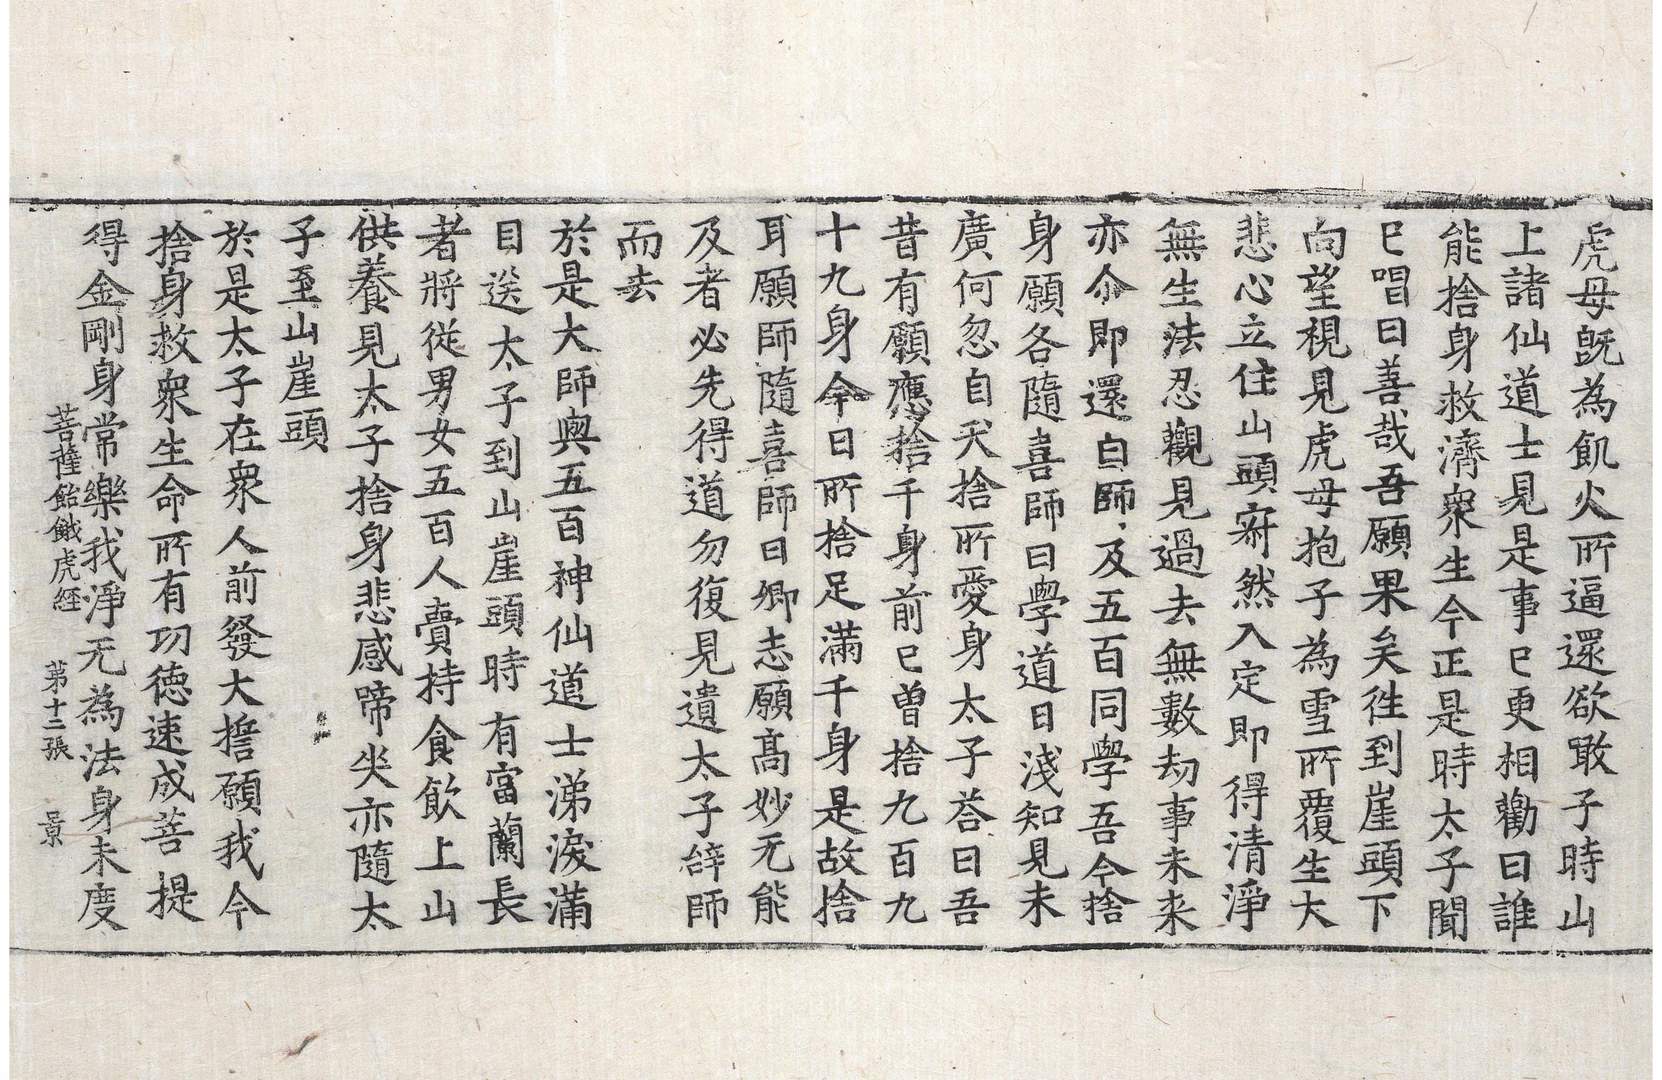 虎母旣為飢火所逼還欲噉子時山
上諸仙道士見是事已更相勸曰誰
能捨身救濟衆生今正是時太子聞
已唱曰善哉吾願果矣徃到崖頭下
向望視見虎母抱子為雪所覆生大
悲心立住山頭㝛然入定即得清淨
無生法忍觀見過去無數劫事未来
亦尒即還白師及五百同學吾今捨
身願各隨喜師曰學道日淺知見未
廣何忽自夭捨所愛身太子荅曰吾
昔有願應捨千身前已曽捨九百九
十九身今日所捨足滿千身是故捨
耳願師隨喜師曰卿志願髙妙无能
及者必先得道勿復見遺太子辝師
而去
於是大師與五百神仙道士涕淚滿
目送太子到山崖頭時有富蘭長
者將從男女五百人賷持食飲上山
供養見太子捨身悲感啼哭亦隨太
子至山崖頭
於是太子在衆人前發大擔願我今
捨身救衆生命所有功徳速成菩提
得金剛身常樂我淨无為法身未度
菩薩飴餓虎経 第十二張 景